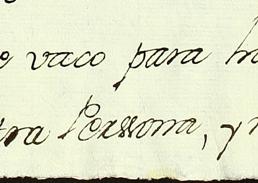 e vaco para h
tra Perssona, y